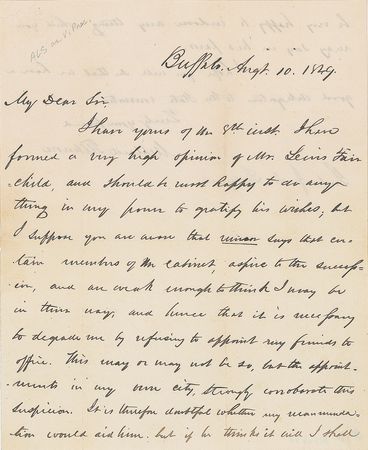 ALS as V. Pres.
Buffalo, Augt. 10. 1849.
My Dear Sir,
I have yours of the 8th inst. I have
formed a very high opinion of Mr. Lewis Fair
child, and should be most happy to do any
thing in my power to gratify his wishes; but
I suppose you are aware that rumor says that cer-
tain members of the cabinet, aspire to the success-
ion, and are weak enough to think I may be
in their way, and hence that it is necessary
to degrade me by refusing to appoint my friends to
office. This may or may not be so, but the appoint-
ments in my own city, strongly corroborate this
suspicion. It is therefore doubtful whether my recommenda-
tion would aid him; but if he thinks it will I shall